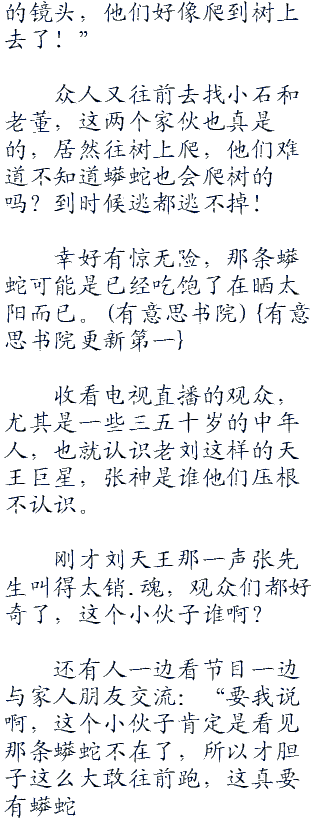 的镜头，他们好像爬到树上
去了！”
众人又往前去找小石和
老董，这两个家伙也真是
的，居然往树上爬，他们难
道不知道蟒蛇也会爬树的
吗？到时候逃都逃不掉！
幸好有惊无险，那条蟒
蛇可能是已经吃饱了在晒太
阳而已。(有意思书院){有意
思书院更新第一}
收看电视直播的观众，
尤其是一些三五十岁的中年
人，也就认识老刘这样的天
王巨星，张神是谁他们压根
不认识。
刚才刘天王那一声张先
生叫得太销.魂，观众们都好
奇了，这个小伙子谁啊？
还有人一边看节目一边
与家人朋友交流：“要我说
啊，这个小伙子肯定是看见
那条蟒蛇不在了，所以才胆
子这么大敢往前跑，这真要
有蟒蛇